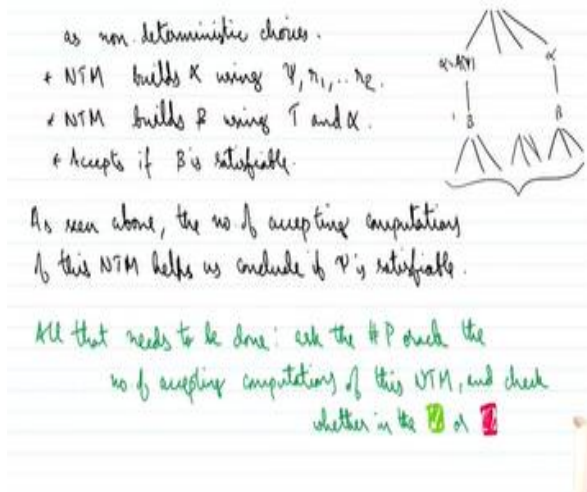 as non-deterministic choices.
* NTM builds α using Ψ, r₁, .. r₂.
* NTM builds β using T and α.
* Accepts if β is satisfiable.
α
β
β
As seen above, the no of accepting computations
of this NTM helps us conclude if Ψ is satisfiable.
All that needs to be done: ask the #P oracle the
no of accepting computations of this NTM, and check
whether in the or